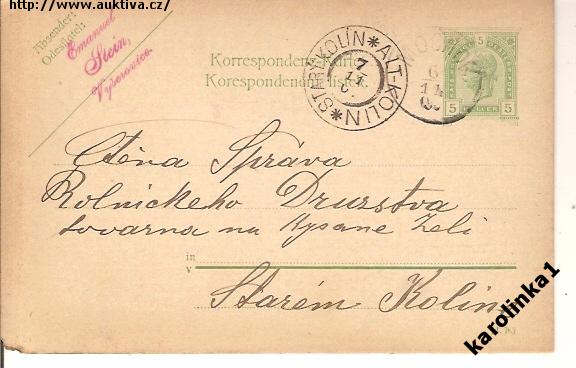 http://www.auktiva.cz/
Absender:
Odesílatel:
Emanuel
Stein,
Vyšerovice.
Korrespondenz-Karte
Korespondenční lístek.
STARÝ KOLÍN * ALT-KOLIN *
7
11
6
11
5
5
5
HELLER
Ctěna Správa
Rolnickeho Druzstva
tovarna na kysane zeli
in
v
Starém Kolíně
karolinka1